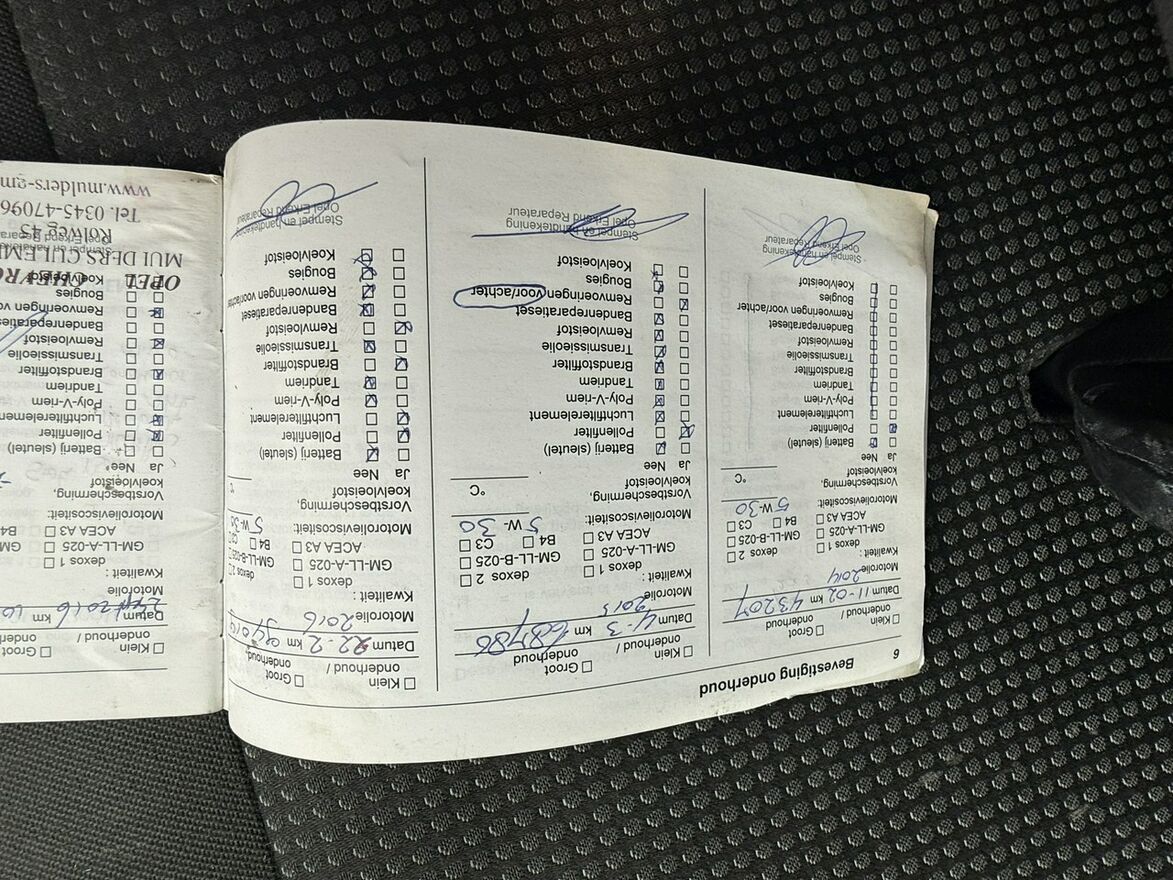 6
Bevestiging onderhoud
Klein onderhoud /
Groot onderhoud
Datum 11-02 km 43207
Motorolie 2014
Kwaliteit :
dexos 1
dexos 2
GM-LL-A-025
GM-LL-B-025
ACEA A3
B4
C3
Motorolieviscositeit: 5W-30
Vorstbescherming,
koelvloeistof
°C
Ja
Nee
Batterij (sleutel)
Pollenfilter
Luchtfilterelement
Poly-V-riem
Tandriem
Brandstoffilter
Transmissieolie
Remvloeistof
Bandenreparatieset
Remvoeringen voor/achter
Bougies
Koelvloeistof
Stempel en handtekening
Opel Erkend Reparateur
Klein onderhoud /
Groot onderhoud
Datum 4-3 km 68786
Motorolie 2015
Kwaliteit:
dexos 1
dexos 2
GM-LL-A-025
GM-LL-B-025
ACEA A3
B4
C3
Motorolieviscositeit: 5W-30
Vorstbescherming,
koelvloeistof
°C
Ja
Nee
Batterij (sleutel)
Pollenfilter
Luchtfilterelement
Poly-V-riem
Tandriem
Brandstoffilter
Transmissieolie
Remvloeistof
Bandenreparatieset
Remvoeringen voor/achter
Bougies
Koelvloeistof
Stempel en handtekening
Opel Erkend Reparateur
Klein onderhoud /
Groot onderhoud
Datum 22-2 km
Motorolie 2016
Kwaliteit:
dexos 1
dexos 2
GM-LL-A-025
GM-LL-B-025
ACEA A3
B4
Motorolieviscositeit: 5W-30
Vorstbescherming,
koelvloeistof
Ja
Nee
Batterij (sleutel)
Pollenfilter
Luchtfilterelement
Poly-V-riem
Tandriem
Brandstoffilter
Transmissieolie
Remvloeistof
Bandenreparatieset
Remvoeringen voor/achter
Bougies
Koelvloeistof
Stempel en handtekening
Opel Erkend Reparateur
Klein onderhoud /
Groot
Datum 2016 km
Motorolie
Kwaliteit :
dexos 1
GM-LL-A-025
GM
ACEA A3
B4
Motorolieviscositeit:
Vorstbescherming,
koelvloeistof
Ja
Nee
Batterij (sleutel)
Pollenfilter
Luchtfilterelement
Poly-V-riem
Tandriem
Brandstoffilter
Transmissieolie
Remvloeistof
Bandenreparatieset
Remvoeringen
Bougies
Koelvloeistof
OPEL CHEVRO
MULDERS CULEM
Rolweg 45
Tel. 0345-47096
www.mulders-gm